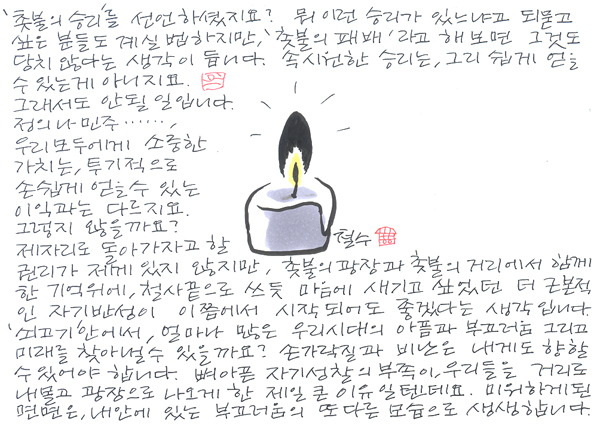 '촛불의 승리'를 선언하셨지요? 뭐 이런 승리가 있느냐고 되묻고
싶은 분들도 계실 법하지만, '촛불의 패배'라고 해보면 그것도
당치 않다는 생각이 듭니다. 속시원한 승리는, 그리 쉽게 얻을
수 있는게 아니지요.
그래서도 안될 일입니다.
정의나 민주……,
우리 모두에게 소중한
가치는, 투기적으로
손쉽게 얻을 수 있는
이익과는 다르지요.
그렇지 않을까요?
제자리로 돌아가자고 할
철수
권리가 제게 있지 않지만, 촛불의 광장과 촛불의 거리에서 함께
한 기억위에, 철사끝으로 쓰듯 마음에 새기고 싶었던 더 근본적
인 자기반성이 이쯤에서 시작되어도 좋겠다는 생각입니다
'쇠고기' 안에서, 얼마나 많은 우리시대의 아픔과 부끄러움 그리고
미래를 찾아낼 수 있을까요? 손가락질과 비난은 내게도 향할
수 있어야 합니다. 뼈아픈 자기성찰의 부족이, 우리들을 거리로
내몰고 광장으로 나오게 한 제일 큰 이유일텐데요. 미워하게된
면면은, 내안에 있는 부끄러움의 또 다른 모습으로 생생합니다.